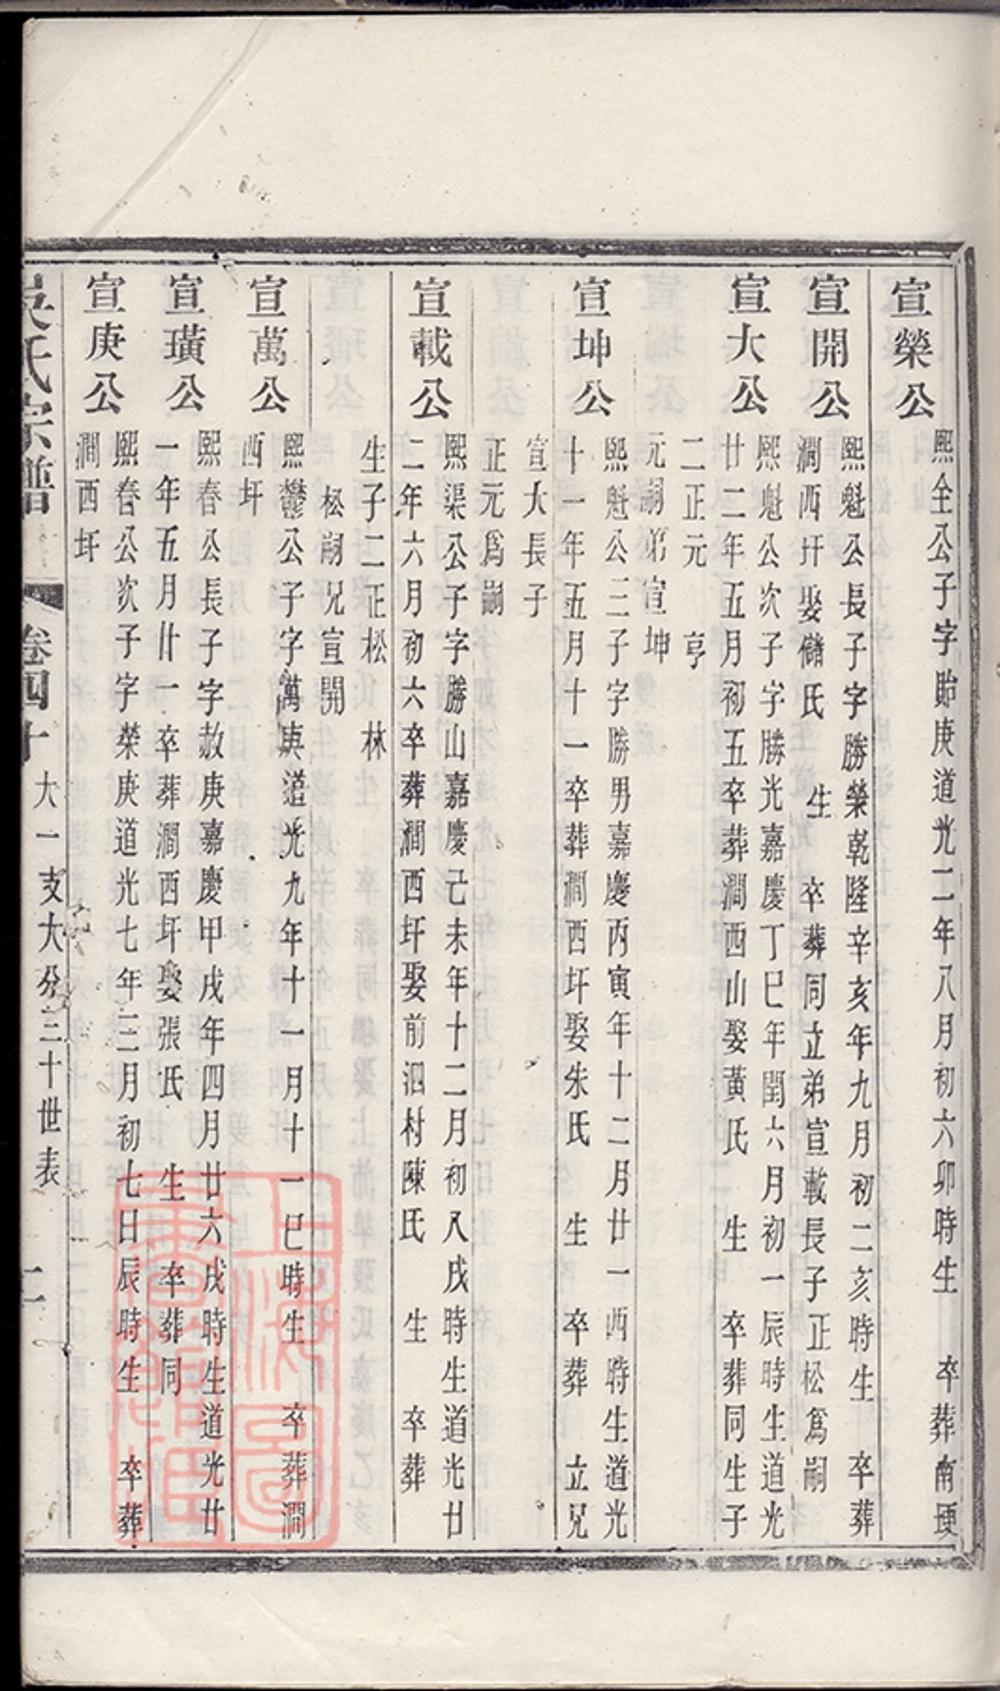 宣榮公
熙全公子字貽庚道光二年八月初六卯時生　卒葬南埂
宣開公
熙魁公長子字勝榮乾隆辛亥年九月初二亥時生　卒葬
澗西圩娶儲氏　生　卒葬同立弟宣載長子正松爲嗣
宣大公
熙魁公次子字勝光嘉慶丁巳年閏六月初一辰時生道光
廿二年五月初五卒葬澗西山娶黃氏　生　卒葬同生子
二正元　亨
元嗣弟宣坤
宣坤公
熙魁公三子字勝男嘉慶丙寅年十二月廿一酉時生道光
十一年五月十一卒葬澗西圩娶朱氏　生　卒葬　立兄
宣大長子
正元爲嗣
宣載公
熙渠公子字勝山嘉慶己未年十二月初八戌時生道光廿
二年六月初六卒葬澗西圩娶前泗村陳氏　生　卒葬
生子二正松　林
松嗣兄宣開
宣萬公
熙鬱公子字萬庚道光九年十一月十一巳時生　卒葬澗
西圩
宣璜公
熙春公長子字赦庚嘉慶甲戌年四月廿六戌時生道光廿
一年五月廿一卒葬澗西圩娶張氏　生　卒葬同
宣庚公
熙春公次子字榮庚道光七年三月初七日辰時生　卒葬
澗西圩
吳氏宗譜　卷四十　大一支大分三十世表　二
上海圖書館藏